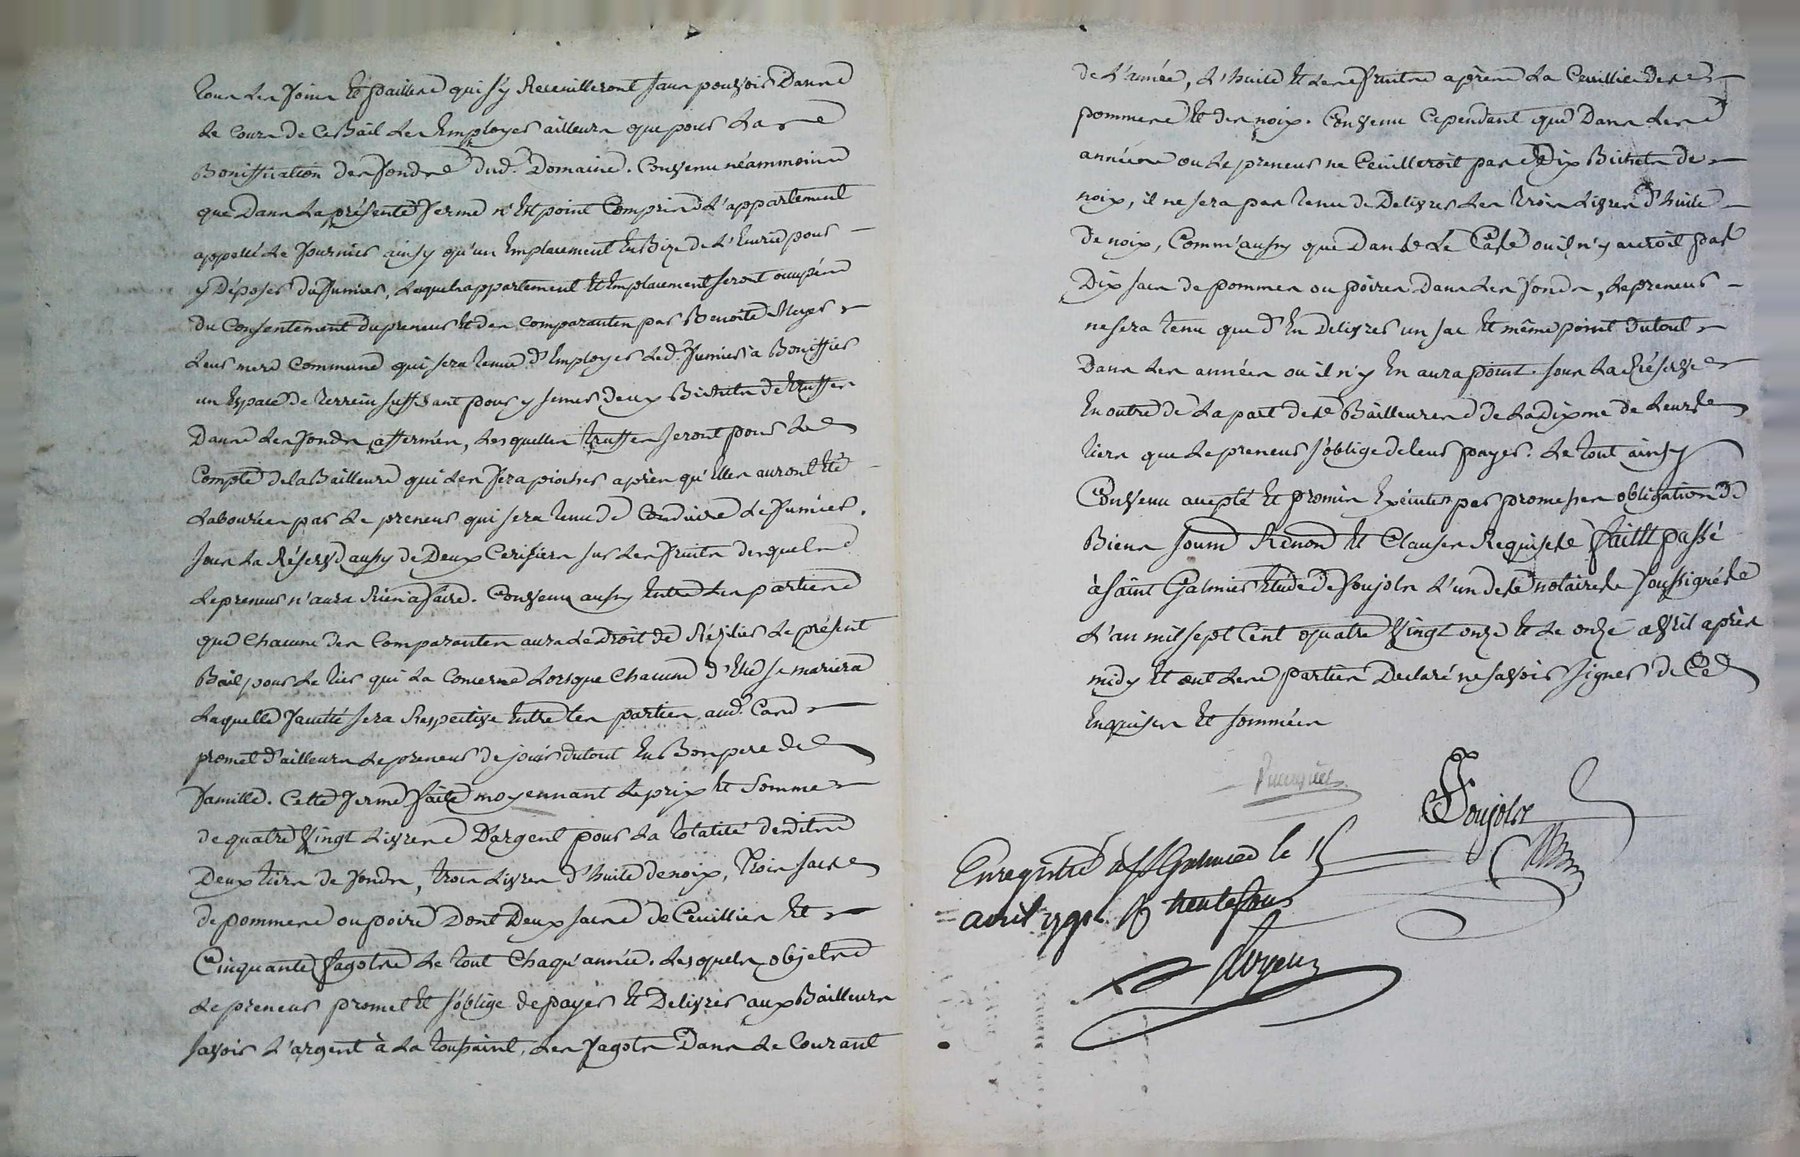 tous les foins et pailles qui s'y receuilleront sans pouvoir dans
le cours de ce Bail les Employer ailleurs que pour la
Boniffication des fonds dud. Domaine. Convenu néammoins
que dans la présente ferme n'est point Compris L'appartement
appellé le fournier ainsy qu'un Emplacement En Bize de L'Ecurie pour
y Déposer du fumier, Lesquels appartement et Emplacement seront occupés
du Consentement du preneur et des Comparantes par Benoite
leur mere Commune qui sera tenue d'Employer led. fumier a Boniffier
un Espace de terrein suffisant pour y semer deux Bichets de truffes
Dans les fonds affermés, Lesquelles truffes seront pour le
Compte de la Bailleure qui les fera piocher après qu'Elles auront Eté
Labourées par le preneur qui sera tenu de Conduire le fumier.
sous la Réserve aussy de Deux Cerisiers sur les fruits desquels
le preneur n'aura Rien a faire. Convenu aussy Entre les parties
que Chacune des Comparantes aura le Droit de Rézilier le présent
Bail pour le tier qui la Concerne Lorsque Chacune d'Elle se mariera
Laquelle faculté sera Respective Entre les parties, aud. Cas
promet d'ailleurs le preneur de jouir du tout En Bon pere de
famille. Cette ferme faite moyennant le prix et Somme
de quatre vingt Livres D'argent pour la totalité desdits
Deux tiers de fonds, trois Livres d'huile de noix, trois sacs
de pommes ou poire Dont Deux sacs de Ceuillier et
Cinquante fagots le tout Chaqu'année. Lesquels objets
le preneur promet et s'oblige de payer et Delivrer aux Bailleurs
savoir L'argent à la toussaint, les fagots Dans le Courant
de L'année, L'huile et les fruits après la Ceuillie des
pommes et des noix. Convenu Cependant que Dans les
années ou le preneur ne Ceuilleroit pas Dix Bichets de
noix, il ne sera pas tenu de Delivrer les trois Livres d'huile
De noix, Comm'aussy que Dans le Cas ou il n'y auroit pas
Dix sacs de pommes ou poires Dans les fonds, le preneur
ne sera tenu que d'En Delivrer un sac et même point du tout
Dans les années ou il n'y En aura point. sous la Réserve
En outre de la part des Bailleures de La Dixme de Leurs
tiers que le preneur s'oblige de leur payer. Le tout ainsy
Convenu accepté et promis Exécuter par promesses obligation de
Biens Soum Renon et Clauses Requises fait et passé
à Saint Galmier Etude de Poujols L'un des notaires soussignés
L'an mil sept Cent quatre vingt onze et le onze avril après
midy et ont les parties Declaré ne savoir signer de Ce
Enquises et sommées
Poujols
Enregistré à St Galmier le 15
avril 1791 R trente sous